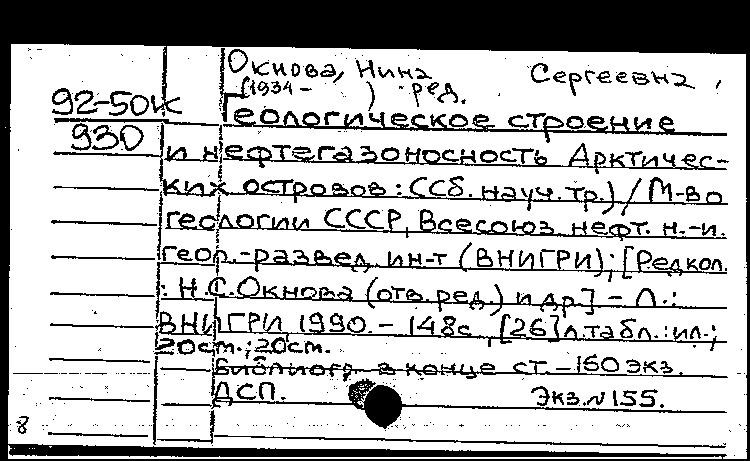 Окнова, Нина Сергеевна,
(1934- ) ред.
92-50к
930
Геологическое строение
и нефтегазоносность Арктичес-
ких островов : [Сб. науч. тр.] / М-во
геологии СССР, Всесоюз. нефт. н.-и.
геол.-развед. ин-т (ВНИГРИ); [Редкол.
: Н.С.Окнова (отв. ред.) и др.] - Л.:
ВНИГРИ, 1990. - 148с., [26]л.табл.:ил.;
20ст.; 20ст.
Библиогр. в конце ст. - 150 экз.
ДСП. Экз.N 155.
8